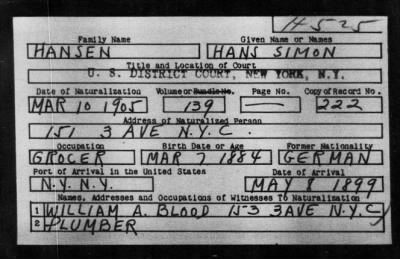 H525
Family Name Given Name or Names
HANSEN HANS SIMON
Title and Location of Court
U. S. DISTRICT COURT, NEW YORK, N.Y.
Date of Naturalization Volume or Bundle No. Page No. Copy of Record No.
MAR 10 1905 139 — 222
Address of Naturalized Person
151 3 AVE N.Y.C.
Occupation Birth Date or Age Former Nationality
GROCER MAR 7 1884 GERMAN
Port of Arrival in the United States Date of Arrival
N.Y. N.Y. MAY 8 1899
Names, Addresses and Occupations of Witnesses To Naturalization
1 WILLIAM A. BLOOD 153 3AVE N.Y.C
2 PLUMBER